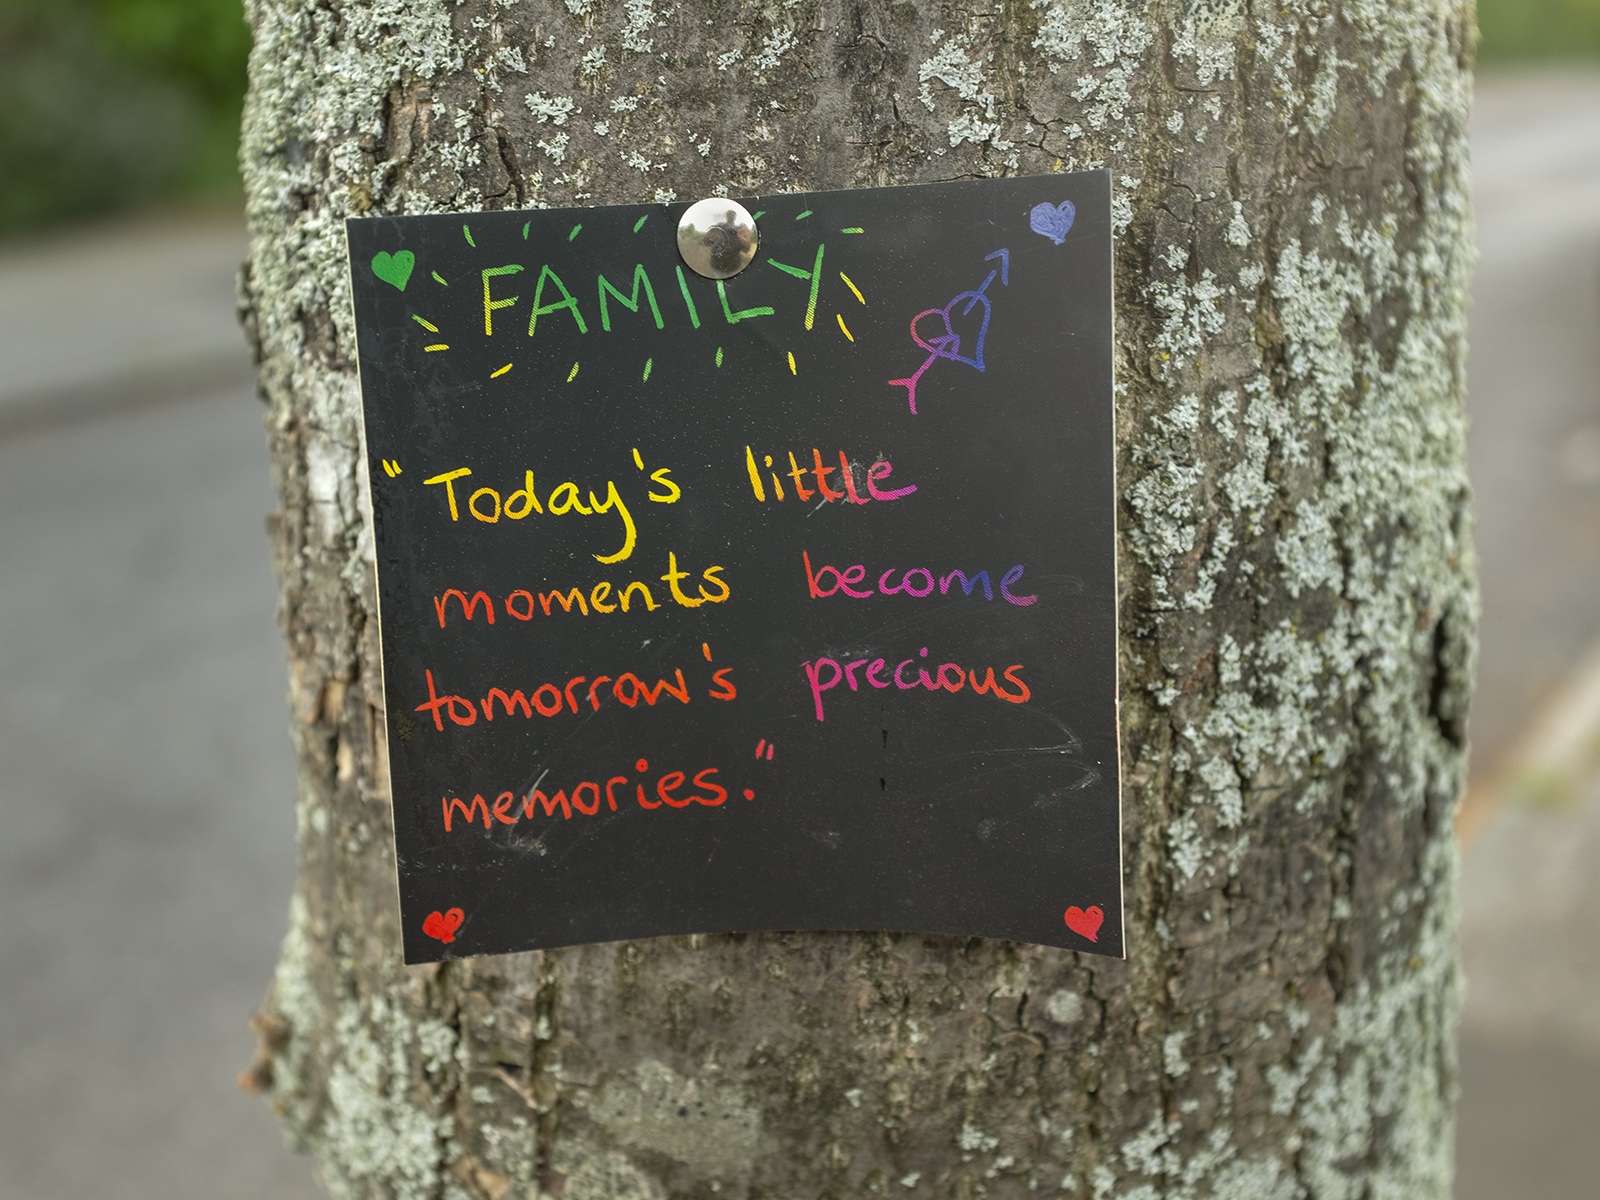 FAMILY
"Today's little
moments become
tomorrow's precious
memories."